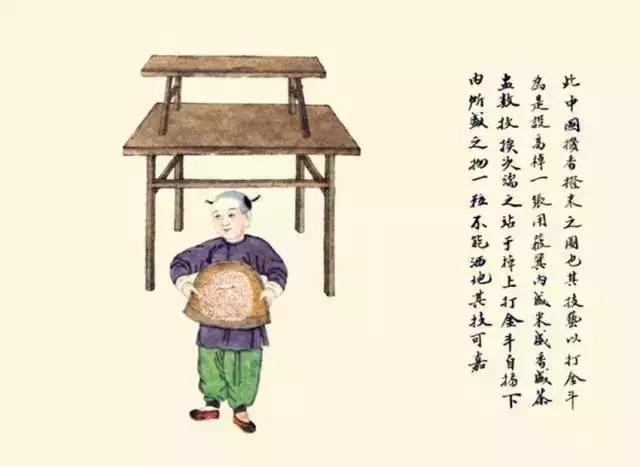 此中國香撥米之圖也其技藝以打金斗
為是設高棹一張用簸箕內盛米盛香盛茶
盅數枚挨次端之站于棹上打金斗自下
內所盛之物一粒不能洒地其技可嘉